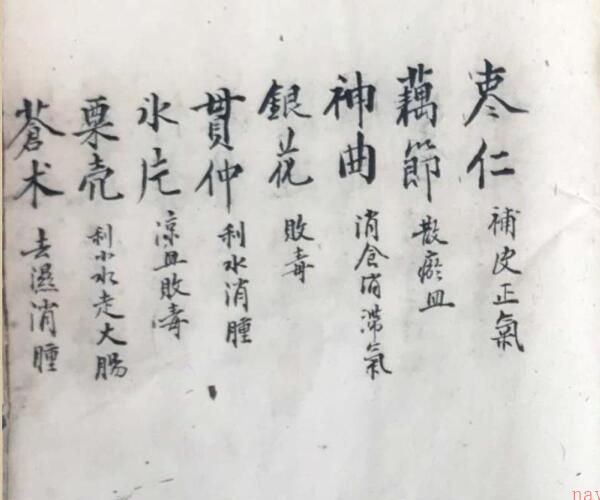 枣仁 補皮正氣
藕節 散瘀血
神曲 消食消滯氣
銀花 敗毒
貫仲 利水消腫
氷片 涼血敗毒
粟壳 利小水走大腸
蒼术 去濕消腫
nav